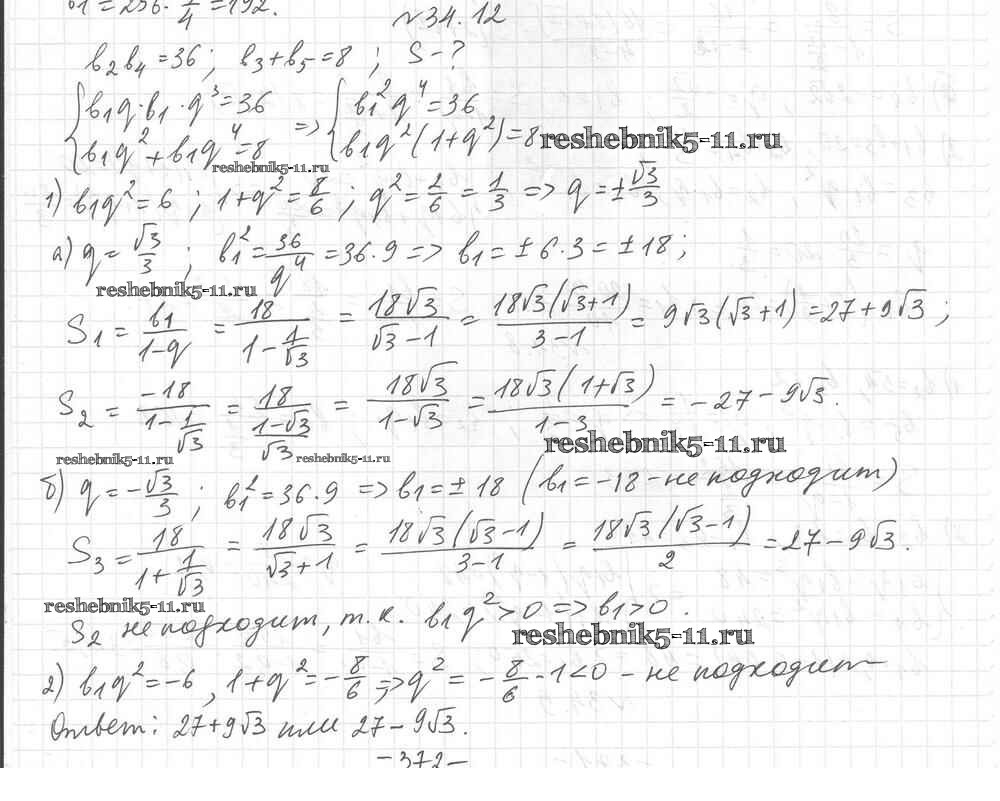 b1 = 256 · 3/4 = 192.
№34.12
b2b4 = 36; b3 + b5 = 8; S - ?
{ b1q · b1 · q³ = 36 => { b1²q⁴ = 36
{ b1q² + b1q⁴ = 8 { b1q²(1+q²) = 8
reshebnik5-11.ru
reshebnik5-11.ru
1) b1q² = 6; 1+q² = 8/6; q² = 2/6 = 1/3 => q = ±√3/3
a) q = √3/3; b1² = 36/q⁴ = 36·9 => b1 = ±6·3 = ±18;
reshebnik5-11.ru
S1 = b1/(1-q) = 18/(1 - 1/√3) = 18√3/(√3-1) = 18√3(√3+1)/(3-1) = 9√3(√3+1) = 27+9√3;
S2 = -18/(1 - 1/√3) = 18/((1-√3)/√3) = 18√3/(1-√3) = 18√3(1+√3)/(1-3) = -27-9√3.
reshebnik5-11.ru
reshebnik5-11.ru
reshebnik5-11.ru
б) q = -√3/3; b1² = 36·9 => b1 = ±18 (b1 = -18 - не подходит)
S3 = 18/(1 + 1/√3) = 18√3/(√3+1) = 18√3(√3-1)/(3-1) = 18√3(√3-1)/2 = 27-9√3.
reshebnik5-11.ru
S2 не подходит, т.к. b1q² > 0 => b1 > 0.
reshebnik5-11.ru
2) b1q² = -6, 1+q² = -8/6 => q² = -8/6 - 1 < 0 - не подходит
Ответ: 27+9√3 или 27-9√3.
-372-